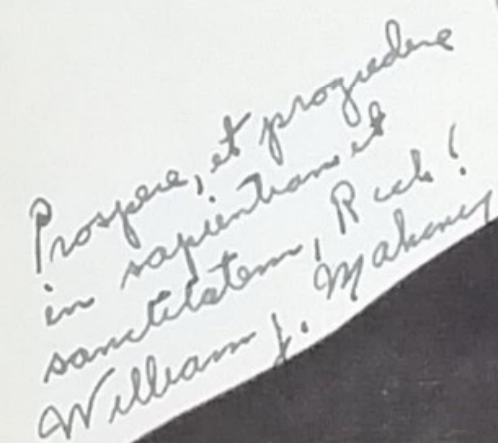 Prospere, et progredere
in sapientiam et
sanctitatem, Rich!
William J. Mahoney